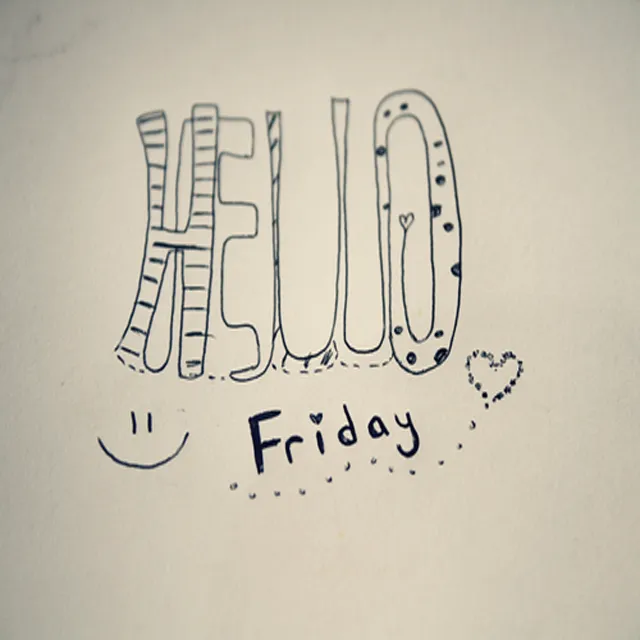 HELLO
Friday